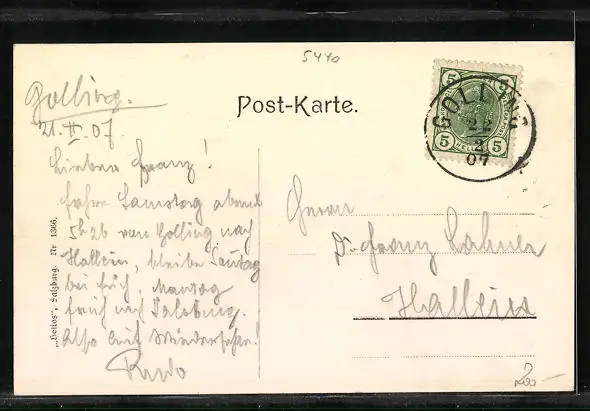 5440
Golling.
21. II. 07.
Post-Karte.
5 5
HELLER
5 5
GOLLING
22
2
07
Lieber Franz!
fahre Samstag abend
5h26 von Golling nach
Hallein, bleibe Sonntag
bei Euch. Montag
früh nach Salzburg.
Also auf Wiedersehen!
Rudo
Herrn
Dr. Franz
Hallein
„Helios", Salzburg. Nr. 1366.